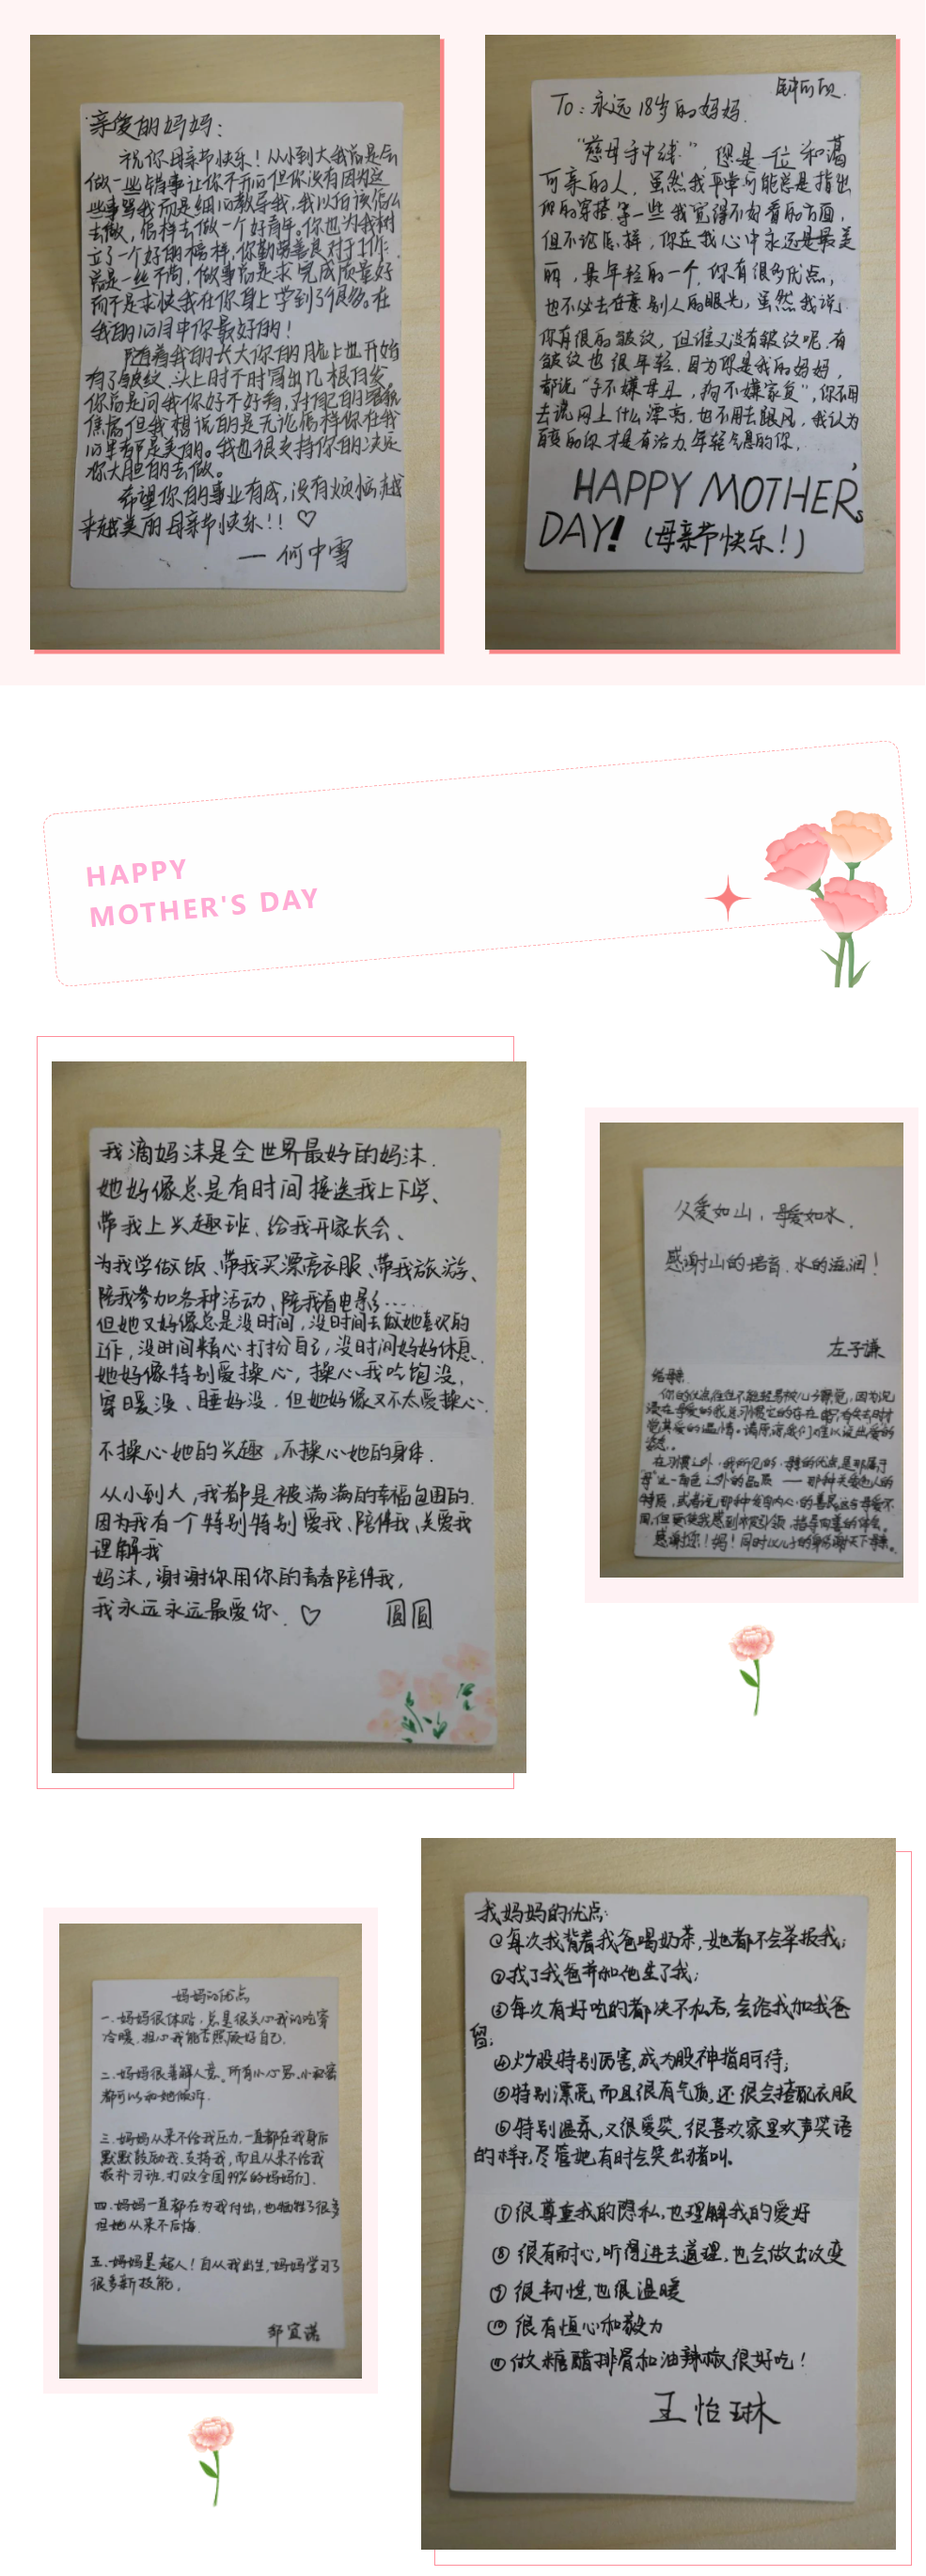 亲爱的妈妈：
祝你母亲节快乐！从小到大我总是会
做一些错事让你不开心但你没有因为这
些事骂我而是细心教导我，我以后该怎么
去做，怎样去做一个好青年。你也为我树
立了一个好的榜样，你勤劳善良对于工作
总是一丝不苟，做事总是求完成质量好
而不是求快我在你身上学到了很多。在
我的心目中你最好的！
随着我的长大你的脸上也开始
有了皱纹、头上时不时冒出几根白发
你总是问我你好不好看，对自己的
焦虑但我想说的是无论怎样你在我
心里都是美的。我也很支持你的决定
你大胆的去做。
希望你的事业有成，没有烦恼越
来越美丽母亲节快乐！！♡
— 何中雪
To：永远18岁的妈妈
“慈母手中线”，您是一位和蔼
可亲的人，虽然我平常可能总是指出
你的穿搭等一些我觉得不好看的方面，
但不论怎样，你在我心中永远是最美
丽，最年轻的一个，你有很多优点，
也不必去在意别人的眼光，虽然我说
你有很的皱纹，但谁又没有皱纹呢，有
皱纹也很年轻，因为你是我的妈妈，
都说“子不嫌母丑，狗不嫌家贫”，你不用
去说网上什么漂亮，也不用去跟风，我认为
真的你才是有活力年轻气息的你，
HAPPY MOTHER's
DAY!（母亲节快乐！）
HAPPY
MOTHER'S DAY
我滴妈沫是全世界最好的妈沫．
她好像总是有时间接送我上下学、
带我上兴趣班、给我开家长会、
为我学做饭、带我买漂亮衣服、带我旅游、
陪我参加各种活动、陪我看电影……
但她又好像总是没时间，没时间去做她喜欢的
工作，没时间精心打扮自己，没时间好好休息．
她好像特别爱操心，操心我吃饱没，
穿暖没、睡好没．但她好像又不太爱操心．
不操心她的兴趣，不操心她的身体．
从小到大，我都是被满满的幸福包围的．
因为我有一个特别特别爱我、陪伴我、关爱我
理解我
妈沫，谢谢你用你的青春陪伴我，
我永远永远最爱你、♡ 圆圆
父爱如山，母爱如水．
感谢山的培育．水的滋润！
左子谦
给母亲：
你的优点往往不能轻易被儿子察觉，因为沉
浸在母爱的我总习惯它的存在
觉其爱的温情。请原谅我们难以说出爱的
姿态。
在习惯之外，我所见的母亲的优点是那属于
“母”这一角色之外的品质——那种天爱他人的
特质，或者说那种发自内心的善良这与母爱不
同，但更使我感到被引领、指导向善的体会。
感谢您！妈！同时以儿子的身份谢天下母亲。
妈妈的优点
一．妈妈很体贴，总是很关心我的吃穿
冷暖．担心我能否照顾好自己．
二．妈妈很善解人意。所有小心思、小秘密
都可以和她倾诉．
三．妈妈从来不给我压力，一直都在我身后
默默鼓励我、支持我，而且从来不给我
报补习班，打败全国99%的妈妈们．
四．妈妈一直都在为我付出，也牺牲了很多
但她从来不后悔．
五．妈妈是超人！自从我出生，妈妈学习了
很多新技能。
邹宜诺
我妈妈的优点：
①每次我背着我爸喝奶茶，她都不会举报我；
②找了我爸并和他生了我；
③每次有好吃的都决不私吞，会给我和我爸
留；
④炒股特别厉害，成为股神指日可待；
⑤特别漂亮，而且很有气质，还很会搭配衣服
⑥特别温柔，又很爱笑，很喜欢家里欢声笑语
的样子，尽管她有时会笑出猪叫。
⑦很尊重我的隐私，也理解我的爱好
⑧很有耐心，听得进去道理，也会做出改变
⑨很韧性，也很温暖
⑩很有恒心和毅力
⑪做糖醋排骨和油辣椒很好吃！
王怡琳